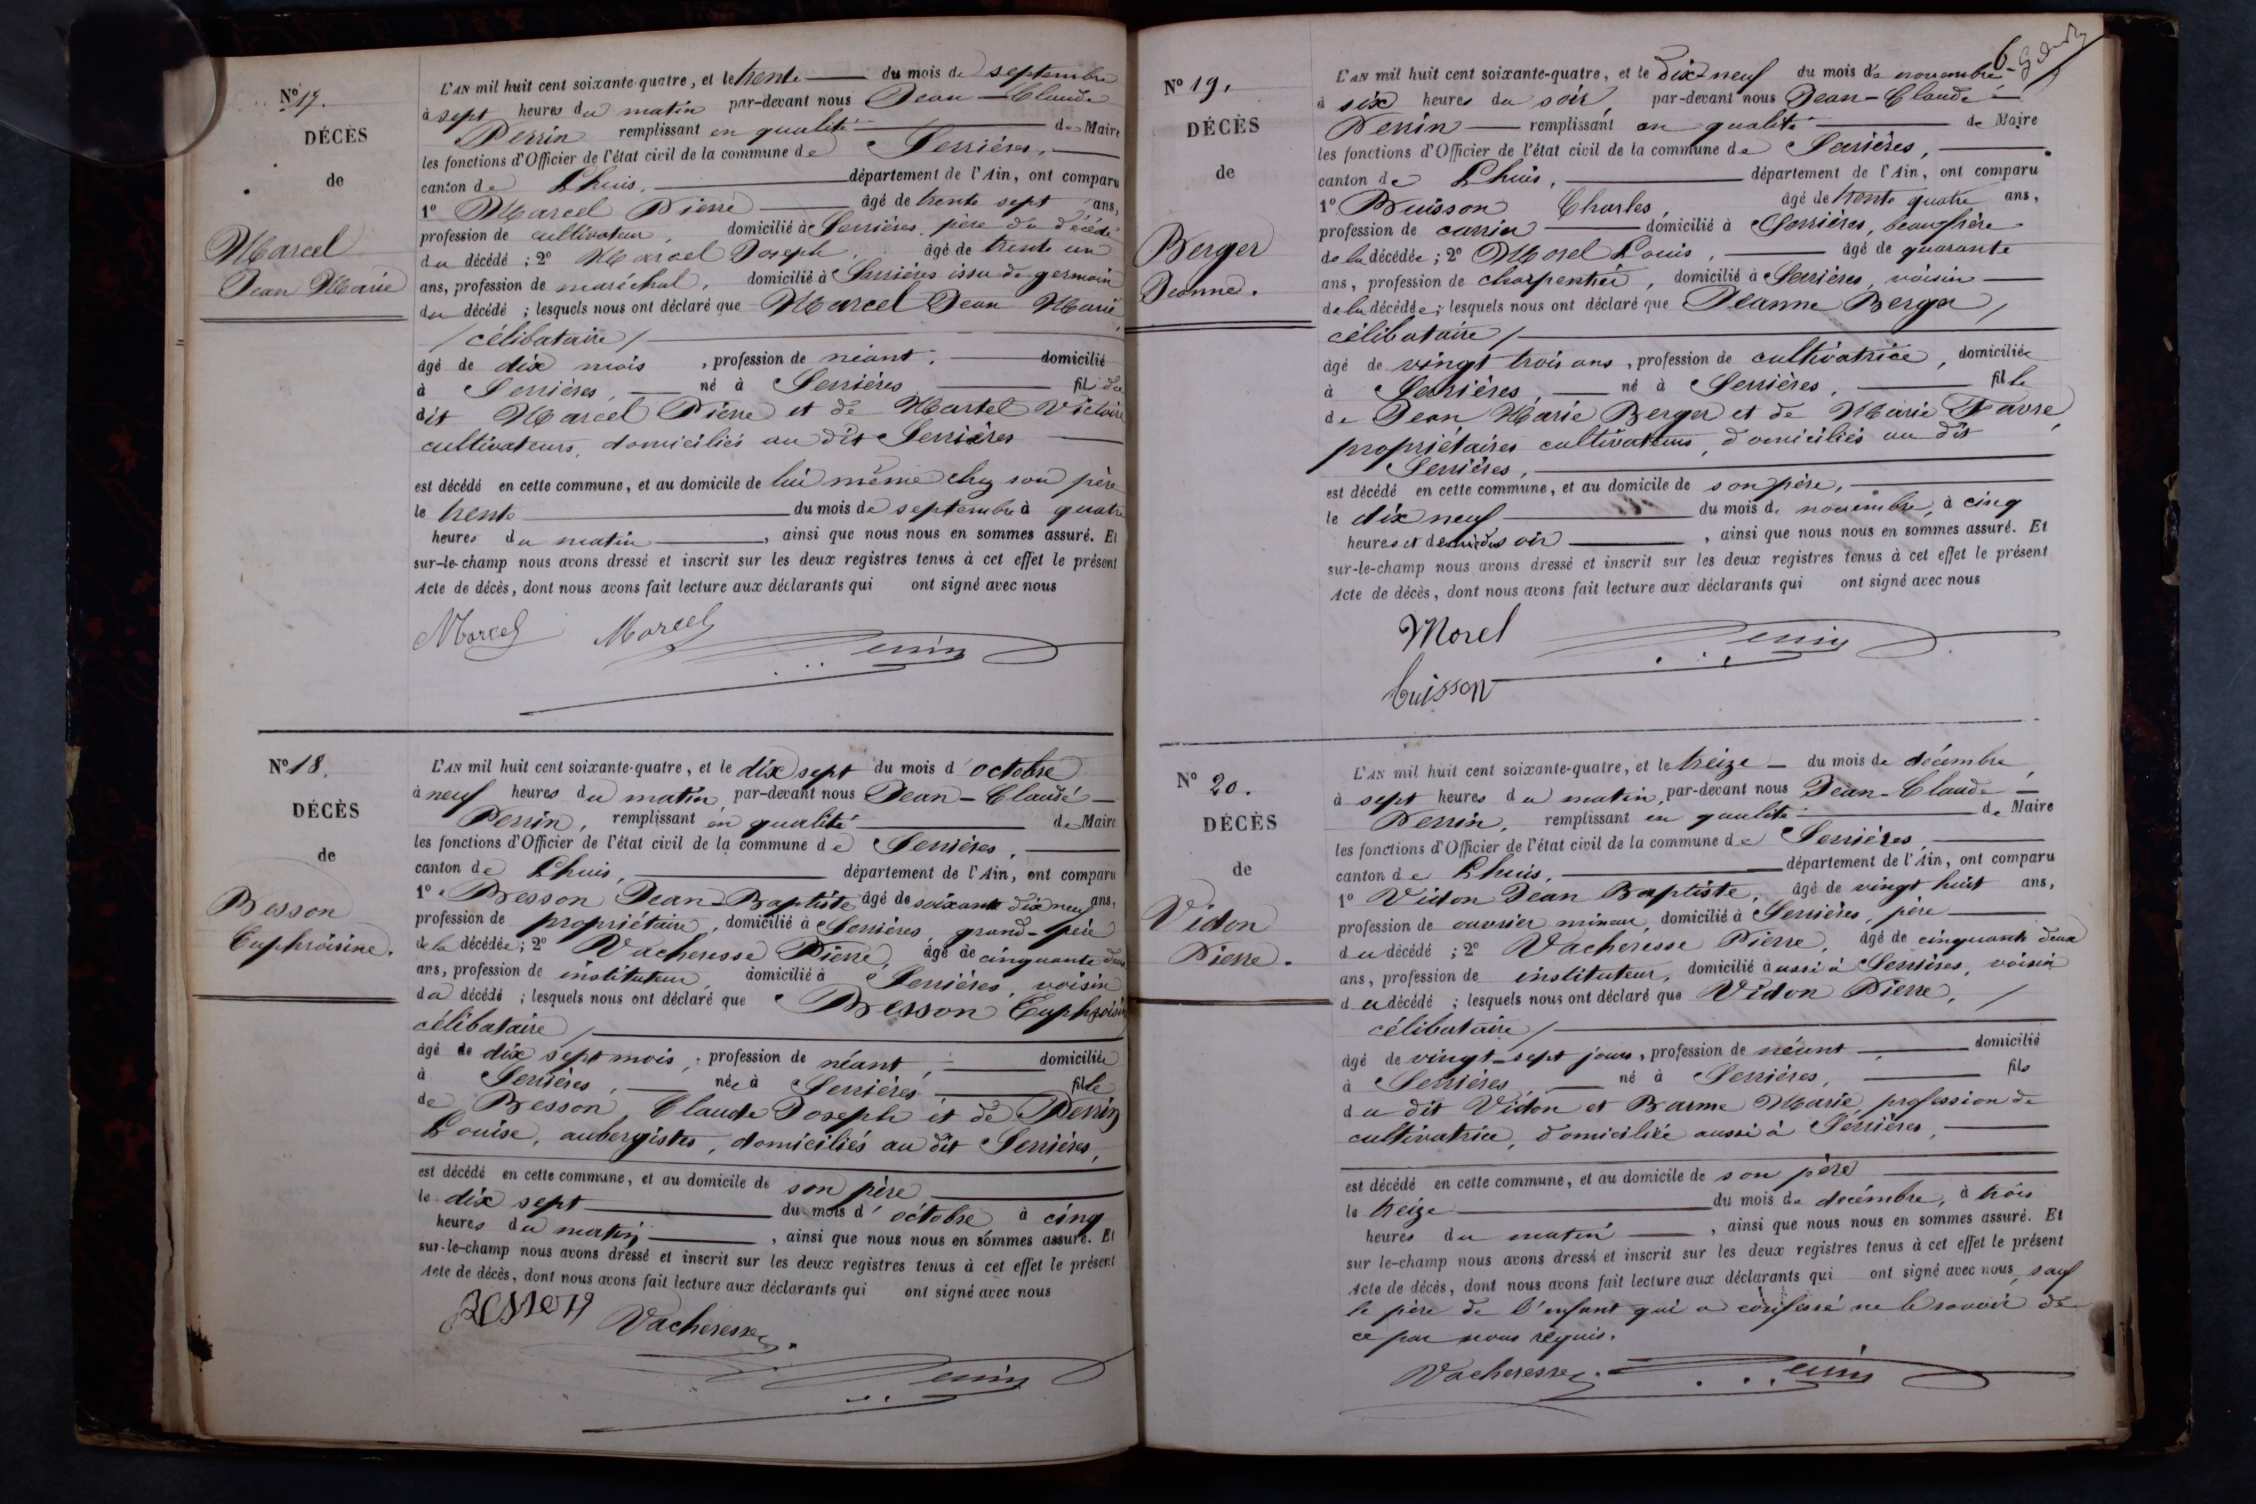 Nº 17.
DÉCÈS
de
Marcel
Jean Marie
L'AN mil huit cent soixante-quatre, et le trente du mois de septembre
à sept heures du matin par-devant nous Jean-Claude
Perrin remplissant en qualité de Maire
les fonctions d'Officier de l'état civil de la commune de Serrières,
canton de Lhuis, département de l'Ain, ont comparu
1º Marcel Pierre âgé de trente sept ans,
profession de cultivateur, domicilié à Serrières, père du décédé
du décédé ; 2º Marcel Joseph, âgé de trente un
ans, profession de maréchal, domicilié à Serrières issu de germain
du décédé ; lesquels nous ont déclaré que Marcel Jean Marie,
/célibataire/
âgé de dix mois, profession de néant, domicilié
à Serrières, né à Serrières fils du
dit Marcel Pierre et de Martel Victoire
cultivateurs, domiciliés au dit Serrières
est décédé en cette commune, et au domicile de lui même chez son père
le trente du mois de septembre à quatre
heures du matin, ainsi que nous nous en sommes assuré. Et
sur-le-champ nous avons dressé et inscrit sur les deux registres tenus à cet effet le présent
Acte de décès, dont nous avons fait lecture aux déclarants qui ont signé avec nous
Marcel Marcel Perrin
Nº 18.
DÉCÈS
de
Besson
Euphroisine.
L'AN mil huit cent soixante-quatre, et le dix sept du mois d'octobre
à neuf heures du matin, par-devant nous Jean-Claude
Perrin, remplissant en qualité de Maire
les fonctions d'Officier de l'état civil de la commune de Serrières,
canton de Lhuis, département de l'Ain, ont comparu
1º Besson Jean-Baptiste âgé de soixante dix neuf ans,
profession de propriétaire, domicilié à Serrières, grand-père
de la décédée ; 2º Vacheresse Pierre, âgé de cinquante deux
ans, profession de instituteur, domicilié à Serrières, voisin
du décédé ; lesquels nous ont déclaré que Besson Euphroisine
célibataire/
âgé de dix sept mois, profession de néant, domiciliée
à Serrières, née à Serrières fille
de Besson, Claude Joseph et de Perrin
Louise, aubergistes, domiciliés au dit Serrières,
est décédé en cette commune, et au domicile de son père
le dix sept du mois d'octobre à cinq
heures du matin, ainsi que nous nous en sommes assuré. Et
sur-le-champ nous avons dressé et inscrit sur les deux registres tenus à cet effet le présent
Acte de décès, dont nous avons fait lecture aux déclarants qui ont signé avec nous
Besson Vacheresse
Perrin
6
Nº 19.
DÉCÈS
de
Berger
Jeanne.
L'AN mil huit cent soixante-quatre, et le Dix-neuf du mois de novembre
à six heures du soir, par-devant nous Jean-Claude
Perrin remplissant en qualité de Maire
les fonctions d'Officier de l'état civil de la commune de Serrières,
canton de Lhuis, département de l'Ain, ont comparu
1º Buisson Charles, âgé de trente quatre ans,
profession de carrier domicilié à Serrières, beau frère
de la décédée ; 2º Morel Louis, âgé de quarante
ans, profession de charpentier, domicilié à Serrières, voisin
de la décédée ; lesquels nous ont déclaré que Jeanne Berger /
célibataire/
âgé de vingt trois ans, profession de cultivatrice, domiciliée
à Serrières, né à Serrières, fille
de Jean Marie Berger et de Marie Favre,
propriétaires cultivateurs, domiciliés au dit
Serrières,
est décédé en cette commune, et au domicile de son père,
le dix neuf du mois de novembre, à cinq
heures et demie du soir, ainsi que nous nous en sommes assuré. Et
sur-le-champ nous avons dressé et inscrit sur les deux registres tenus à cet effet le présent
Acte de décès, dont nous avons fait lecture aux déclarants qui ont signé avec nous
Morel Perrin
buisson
Nº 20.
DÉCÈS
de
Vidon
Pierre.
L'AN mil huit cent soixante-quatre, et le treize du mois de décembre,
à sept heures du matin, par-devant nous Jean-Claude
Perrin, remplissant en qualité de Maire
les fonctions d'Officier de l'état civil de la commune de Serrières,
canton de Lhuis, département de l'Ain, ont comparu
1º Vidon Jean Baptiste, âgé de vingt huit ans,
profession de ouvrier mineur, domicilié à Serrières, père
du décédé ; 2º Vacheresse Pierre, âgé de cinquante deux
ans, profession de instituteur, domicilié aussi à Serrières, voisin
du décédé ; lesquels nous ont déclaré que Vidon Pierre, /
célibataire/
âgé de vingt-sept jours, profession de néant, domicilié
à Serrières, né à Serrières, fils
du dit Vidon et Barme Marie, profession de
cultivatrice, domiciliée aussi à Serrières,
est décédé en cette commune, et au domicile de son père
le treize du mois de décembre, à trois
heures du matin, ainsi que nous nous en sommes assuré. Et
sur le-champ nous avons dressé et inscrit sur les deux registres tenus à cet effet le présent
Acte de décès, dont nous avons fait lecture aux déclarants qui ont signé avec nous, sauf
le père de l'enfant qui a confessé ne le savoir de
ce par nous requis.
Vacheresse Perrin